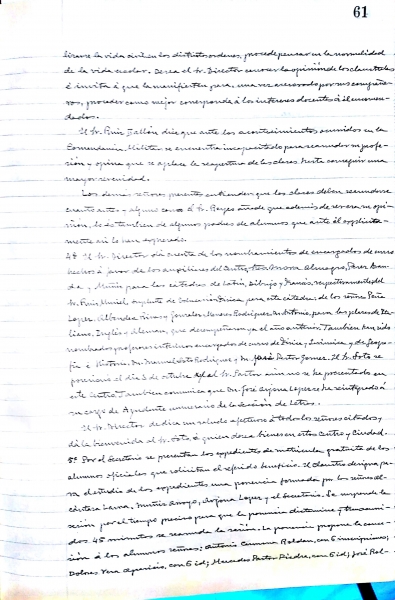 61
la vida civil en los distintos ordenes, procede pensar en la normalidad
de la vida escolar. Desea el Sr. Director conocer la opinión de los claustrales
é invita á que la manifiesten para, una vez asesorado por sus compañeros,
proceder como mejor corresponda á los intereses docentes á él encomendados.
El Sr. Ruiz Tallón dice que ante los acontecimientos ocurridos en la
Comandancia Militar se encuentra incapacitado para reanudar su profesión
y opina que se aplace la reapertura de las clases hasta conseguir una
mayor serenidad.
Los demás señores presentes entienden que las clases deben reanudarse
cuanto antes y algunos como el Sr. Reyes añade que además de ser esa su opinión,
lo es tambien de algunos padres de alumnos que ante él explicitamente
así lo han expresado.
4º El Sr. Director dá cuenta de los nombramientos de encargados de curso
hechos á favor de los auxiliares del Instituto Almagro, Perez
y Muñiz para las cátedras de Latín, Dibujo y respectivamente del
Sr. Ruiz Muriel, Ayudante de Educación Física, para esta cátedra; de los señores Peña
Lopez, Albendea y Gonzalez, Rodriguez para las plazas de Italiano,
Inglés y Aleman, que desempeñaron ya el año anterior. Tambien han sido
nombrados profesores interinos encargados de curso de Física y Quimica y de Geografía
é Historia, Dn. Manuel Soto Rodriguez y Dn. José Pastor Gomez. El Sr. Soto se
posesionó el día 3 de octubre y el Sr. Pastor aún no se ha presentado en
este Centro. Tambien comunica que Dn. José Arjona Lopez se ha reintegrado á
su cargo de Ayudante numerario de la Sección de Letras.
El Sr. Director dedica un saludo afectuoso á todos los señores citados y
dá la bienvenida al Sr. Soto á quien desea bienes en estos Centro y Ciudad.
5º Por el Secretario se presentan los expedientes de matricula gratuita de los
alumnos oficiales que solicitan el referido beneficio. El claustro designa para
el estudio de los expedientes una ponencia formada por los señores
Lerma, Muñoz Arroyo, Arjona Lopez y el Secretario. Se suspende la
sesión por el tiempo preciso para que la ponencia dictamine y transcurridos
45 minutos se reanuda la sesión. La ponencia propone la concesión
á los alumnos señores: Antonio Roldan, con 6 inscripciones;
Dolores Vera Aparicio, con 6 id; Mercedes Pastor Piedra, con 6 id; José Rol-